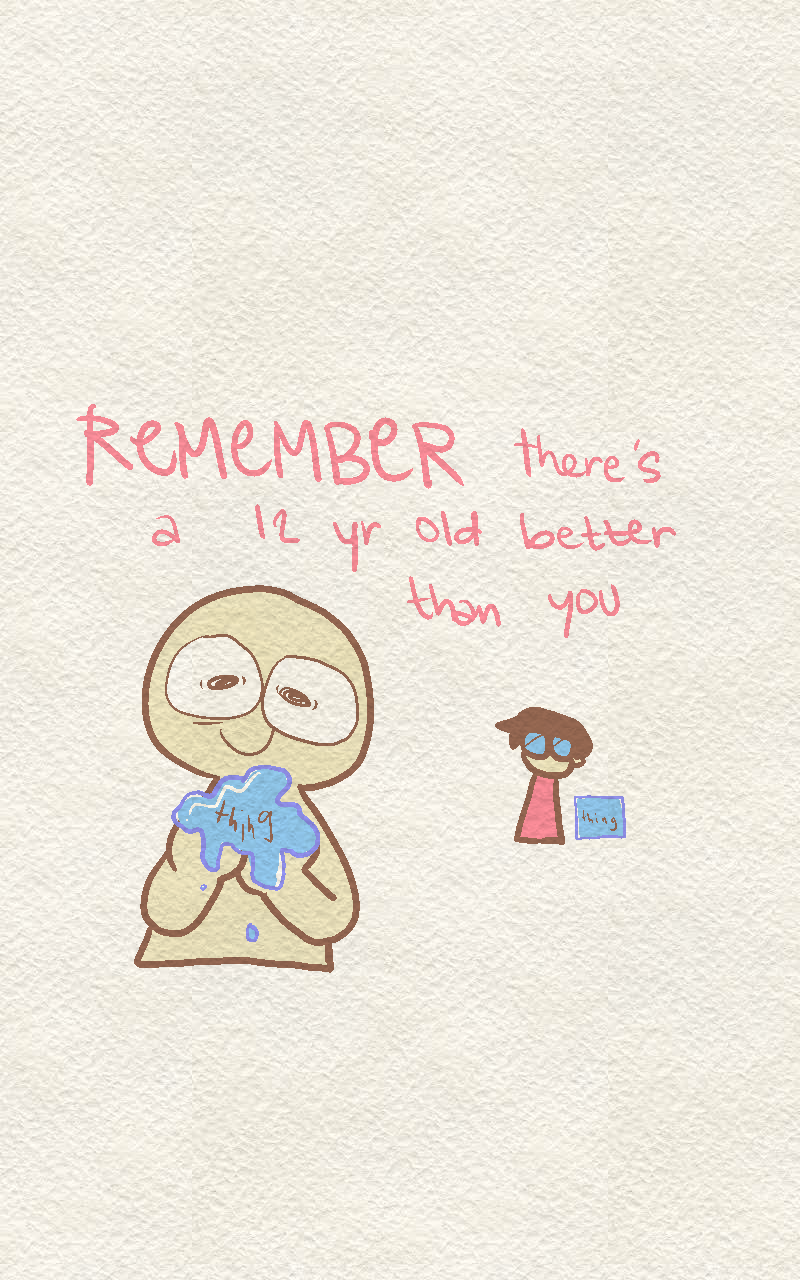 REMEMBER there's
a 12 yr old better
than you
thing
thing